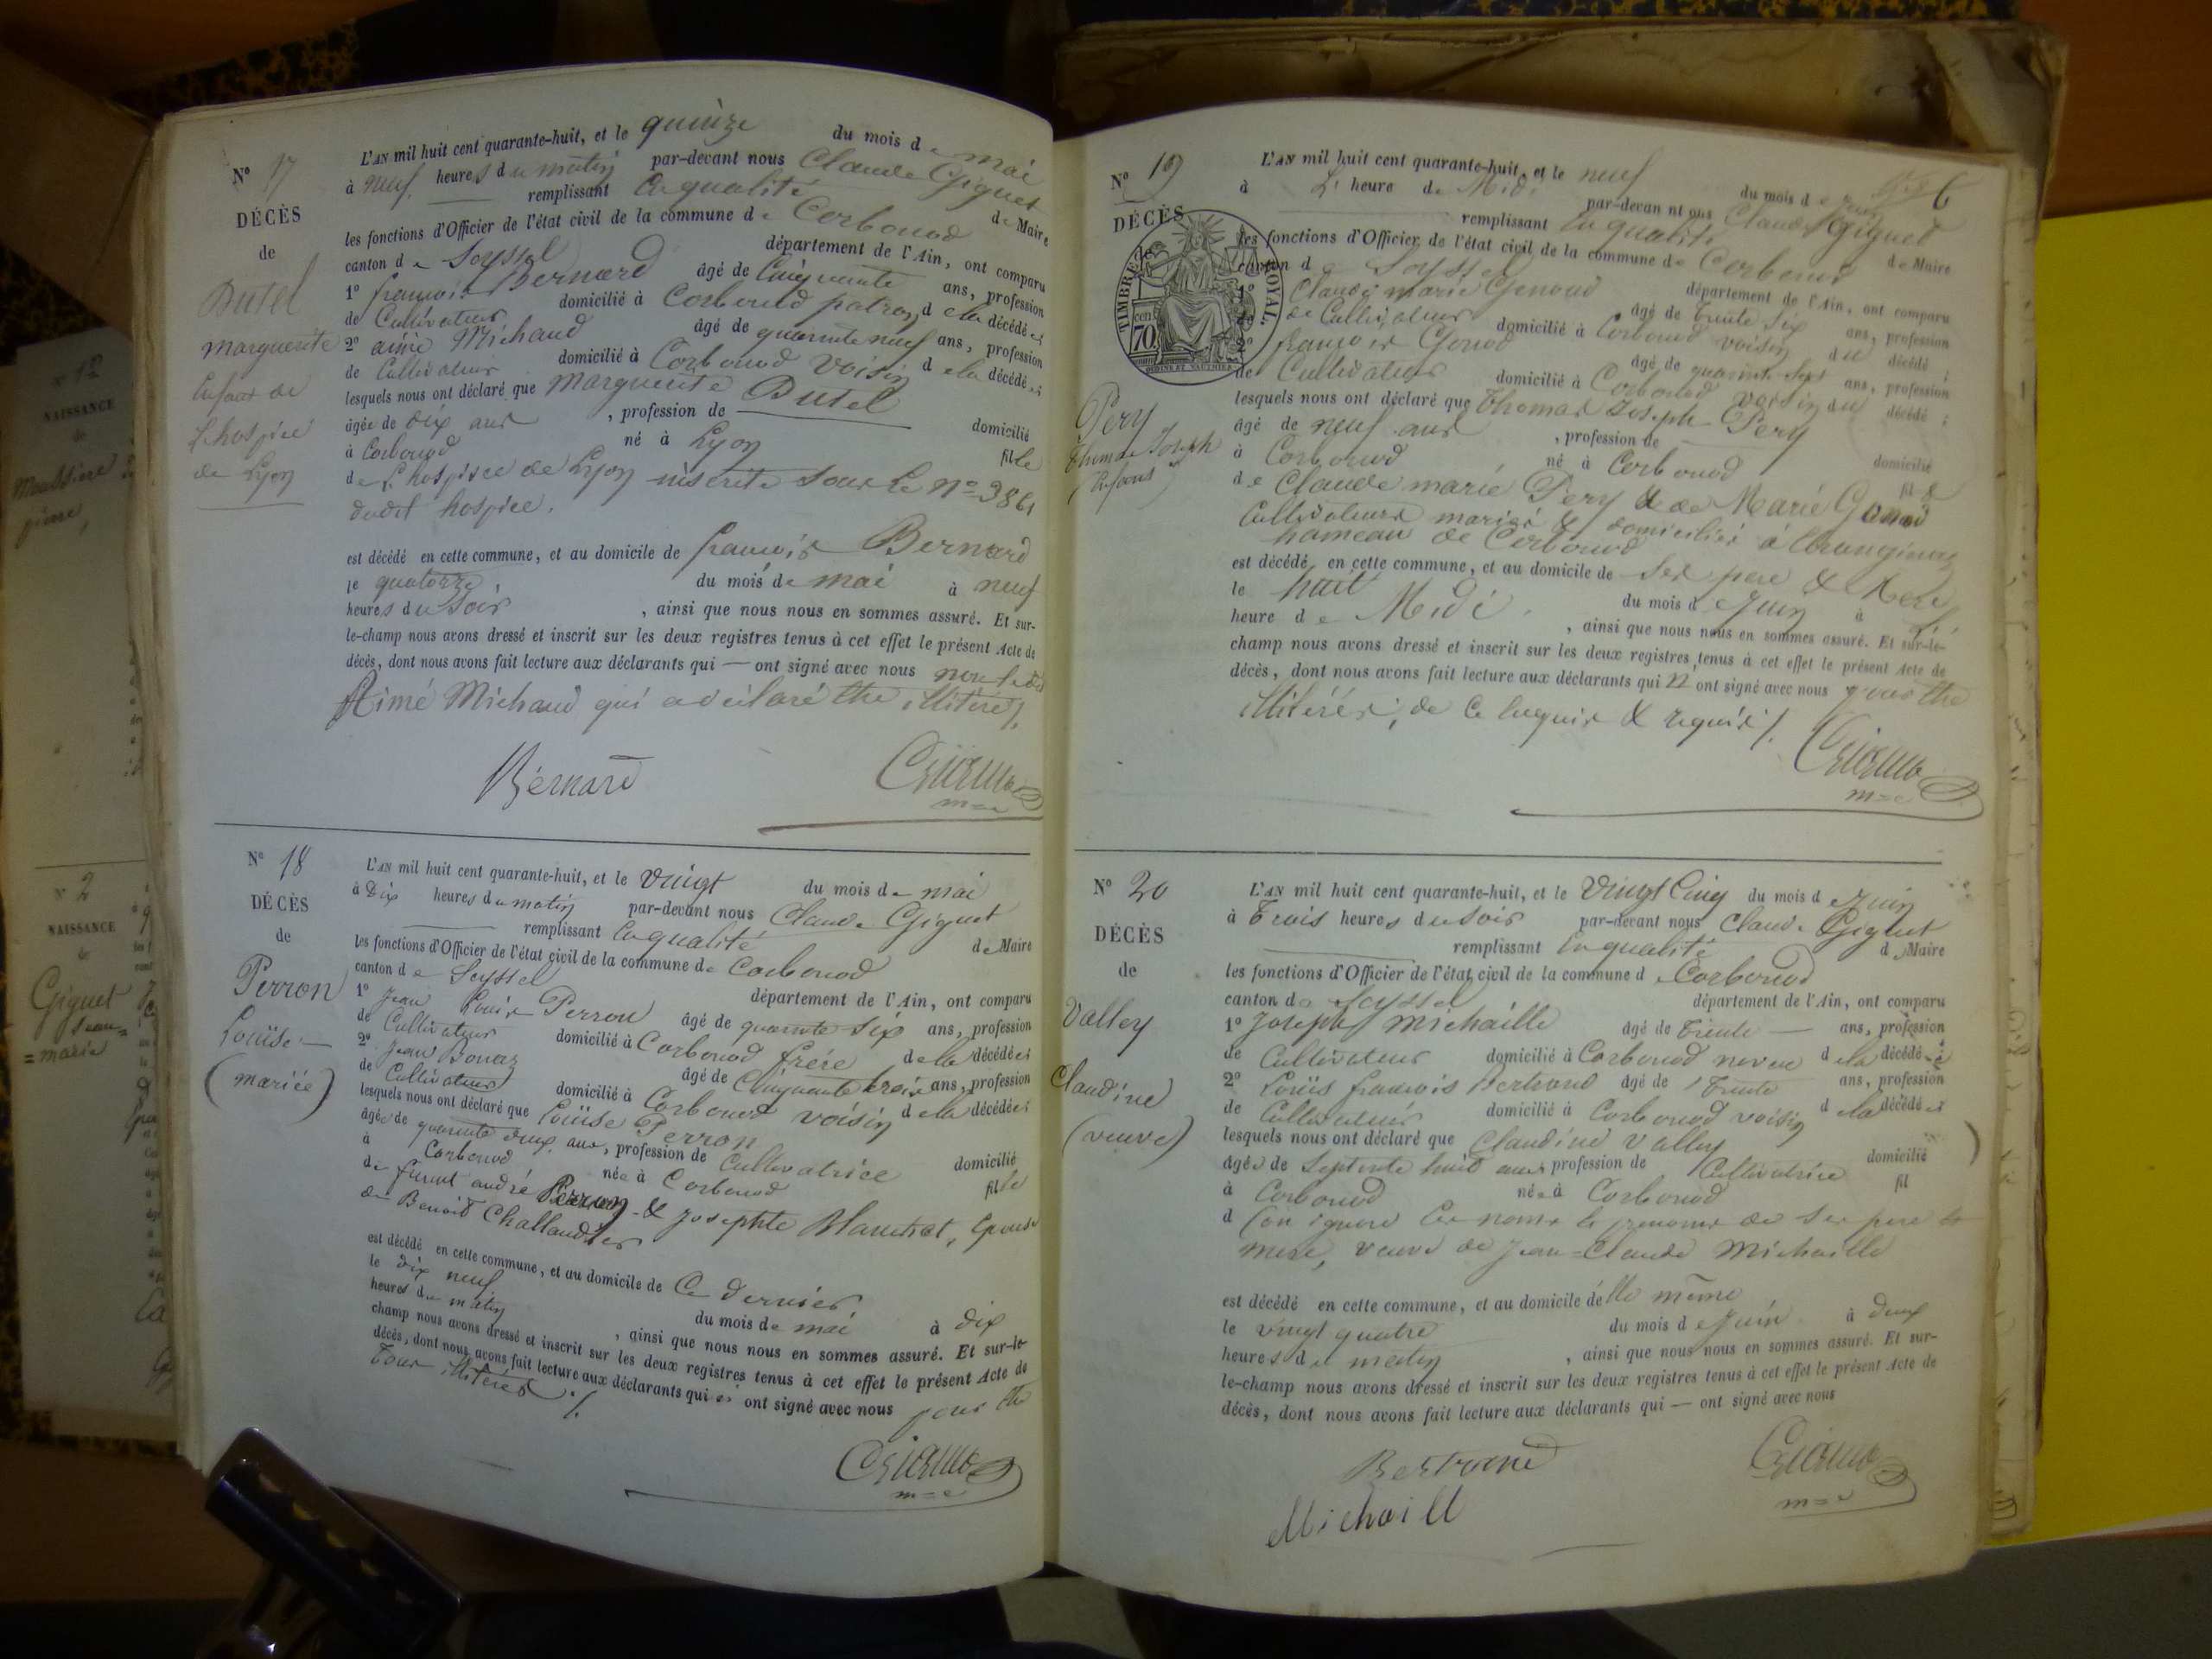 N° 17
DÉCÈS
de
Butel
marguerite
Enfant de
l'hospice
de Lyon
L'AN mil huit cent quarante-huit, et le quinze du mois de mai
à neuf heures du matin par-devant nous Claude Giguet
remplissant en qualité de Maire
les fonctions d'Officier de l'état civil de la commune de Corbonod
canton de Seyssel département de l'Ain, ont comparu
1° françois Bernard âgé de Cinquante ans, profession
de Cultivateur domicilié à Corbonod patron de la décédée
2° aimé Michaud âgé de quarante neuf ans, profession
de Cultivateur domicilié à Corbonod voisin de la décédée;
lesquels nous ont déclaré que Marguerite Butel
âgée de dix ans, profession de domicilié
à Corbonod né à Lyon fille
de L'hospice de Lyon inscrite sous le n° 3861
dudit hospice.
est décédé en cette commune, et au domicile de françois Bernard
le quatorze du mois de mai à neuf
heures du soir, ainsi que nous nous en sommes assuré. Et sur-
le-champ nous avons dressé et inscrit sur les deux registres tenus à cet effet le présent Acte de
décès, dont nous avons fait lecture aux déclarants qui — ont signé avec nous
Aimé Michaud qui a déclaré être illitéré /.
Bernard
m=e
N° 18
DÉCÈS
de
Perron
Louise
(mariée)
L'AN mil huit cent quarante-huit, et le vingt du mois de mai
à Dix heures du matin par-devant nous Claude Giguet
remplissant en qualité de Maire
les fonctions d'Officier de l'état civil de la commune de Corbonod
canton de Seyssel département de l'Ain, ont comparu
1° Jean Louis Perron âgé de quarante six ans, profession
de Cultivateur domicilié à Corbonod frère de la décédée;
2° Jean Bonaz âgé de Cinquante trois ans, profession
de Cultivateur domicilié à Corbonod voisin de la décédée;
lesquels nous ont déclaré que Louise Perron
âgée de quarante deux ans, profession de Cultivatrice domicilié
à Corbonod née à Corbonod fille
de feu andré Perron & Josephte Blanchet, Epouse
de Benoit Challandier
est décédé en cette commune, et au domicile de Ce dernier.
le dix neuf du mois de mai à dix
heures du matin, ainsi que nous nous en sommes assuré. Et sur-le-
champ nous avons dressé et inscrit sur les deux registres tenus à cet effet le présent Acte de
décès, dont nous avons fait lecture aux déclarants qui ont signé avec nous pour être
Tous illitérés ./.
m=e
N° 19
6
DÉCÈS
de
TIMBRE ROYAL.
70
cen
Pery
Thomas Joseph
(Enfant)
L'AN mil huit cent quarante-huit, et le neuf du mois de Juin
à L' heure de Midi par-devan nt ous Claude Giguet
remplissant en qualité de Maire
les fonctions d'Officier de l'état civil de la commune de Corbonod
canton de Seyssel département de l'Ain, ont comparu
1° Claude marie Genoud âgé de trente six ans, profession
de Cultivateur domicilié à Corbonod voisin du décédé;
2° françois Genod âgé de quarante sept ans, profession
de Cultivateur domicilié à Corbonod voisin du décédé;
lesquels nous ont déclaré que Thomas Joseph Pery
âgé de neuf ans, profession de domicilié
à Corbonod né à Corbonod fils
de Claude marie Pery & de Marie
Cultivateurs mariés & domiciliés à
hameau de Corbonod
est décédé en cette commune, et au domicile de ses pere & Mere
le huit du mois de Juin à
heure de Midi, ainsi que nous nous en sommes assuré. Et sur-le-
champ nous avons dressé et inscrit sur les deux registres tenus à cet effet le présent Acte de
décès, dont nous avons fait lecture aux déclarants qui n ont signé avec nous pour être
illitérés, de ce enquis & requis /.
m=e
N° 20
DÉCÈS
de
Valley
Claudine
(veuve)
L'AN mil huit cent quarante-huit, et le vingt Cinq du mois de Juin
à trois heures du soir par-devant nous Claude Giguet
remplissant en qualité de Maire
les fonctions d'Officier de l'état civil de la commune de Corbonod
canton de Seyssel département de l'Ain, ont comparu
1° Joseph Michaille âgé de trente — ans, profession
de Cultivateur domicilié à Corbonod neveu de la décédée
2° Louis françois Bertrand âgé de trente ans, profession
de Cultivateur domicilié à Corbonod voisin de la décédée;
lesquels nous ont déclaré que Claudine Valley
âgée de septente huit ans profession de Cultivatrice domicilié
à Corbonod née à Corbonod fil
d (on ignore les noms & prenoms de ses pere &
mere, veuve de Jean=Claude Michaille
est décédé en cette commune, et au domicile d'elle même
le vingt quatre du mois de Juin à deux
heures du matin, ainsi que nous nous en sommes assuré. Et sur-
le-champ nous avons dressé et inscrit sur les deux registres tenus à cet effet le présent Acte de
décès, dont nous avons fait lecture aux déclarants qui — ont signé avec nous
Bertrand
m=e
Michaill
N° 12
NAISSANCE
de
N° 2
NAISSANCE
de
Giguet
Jean=
=marie